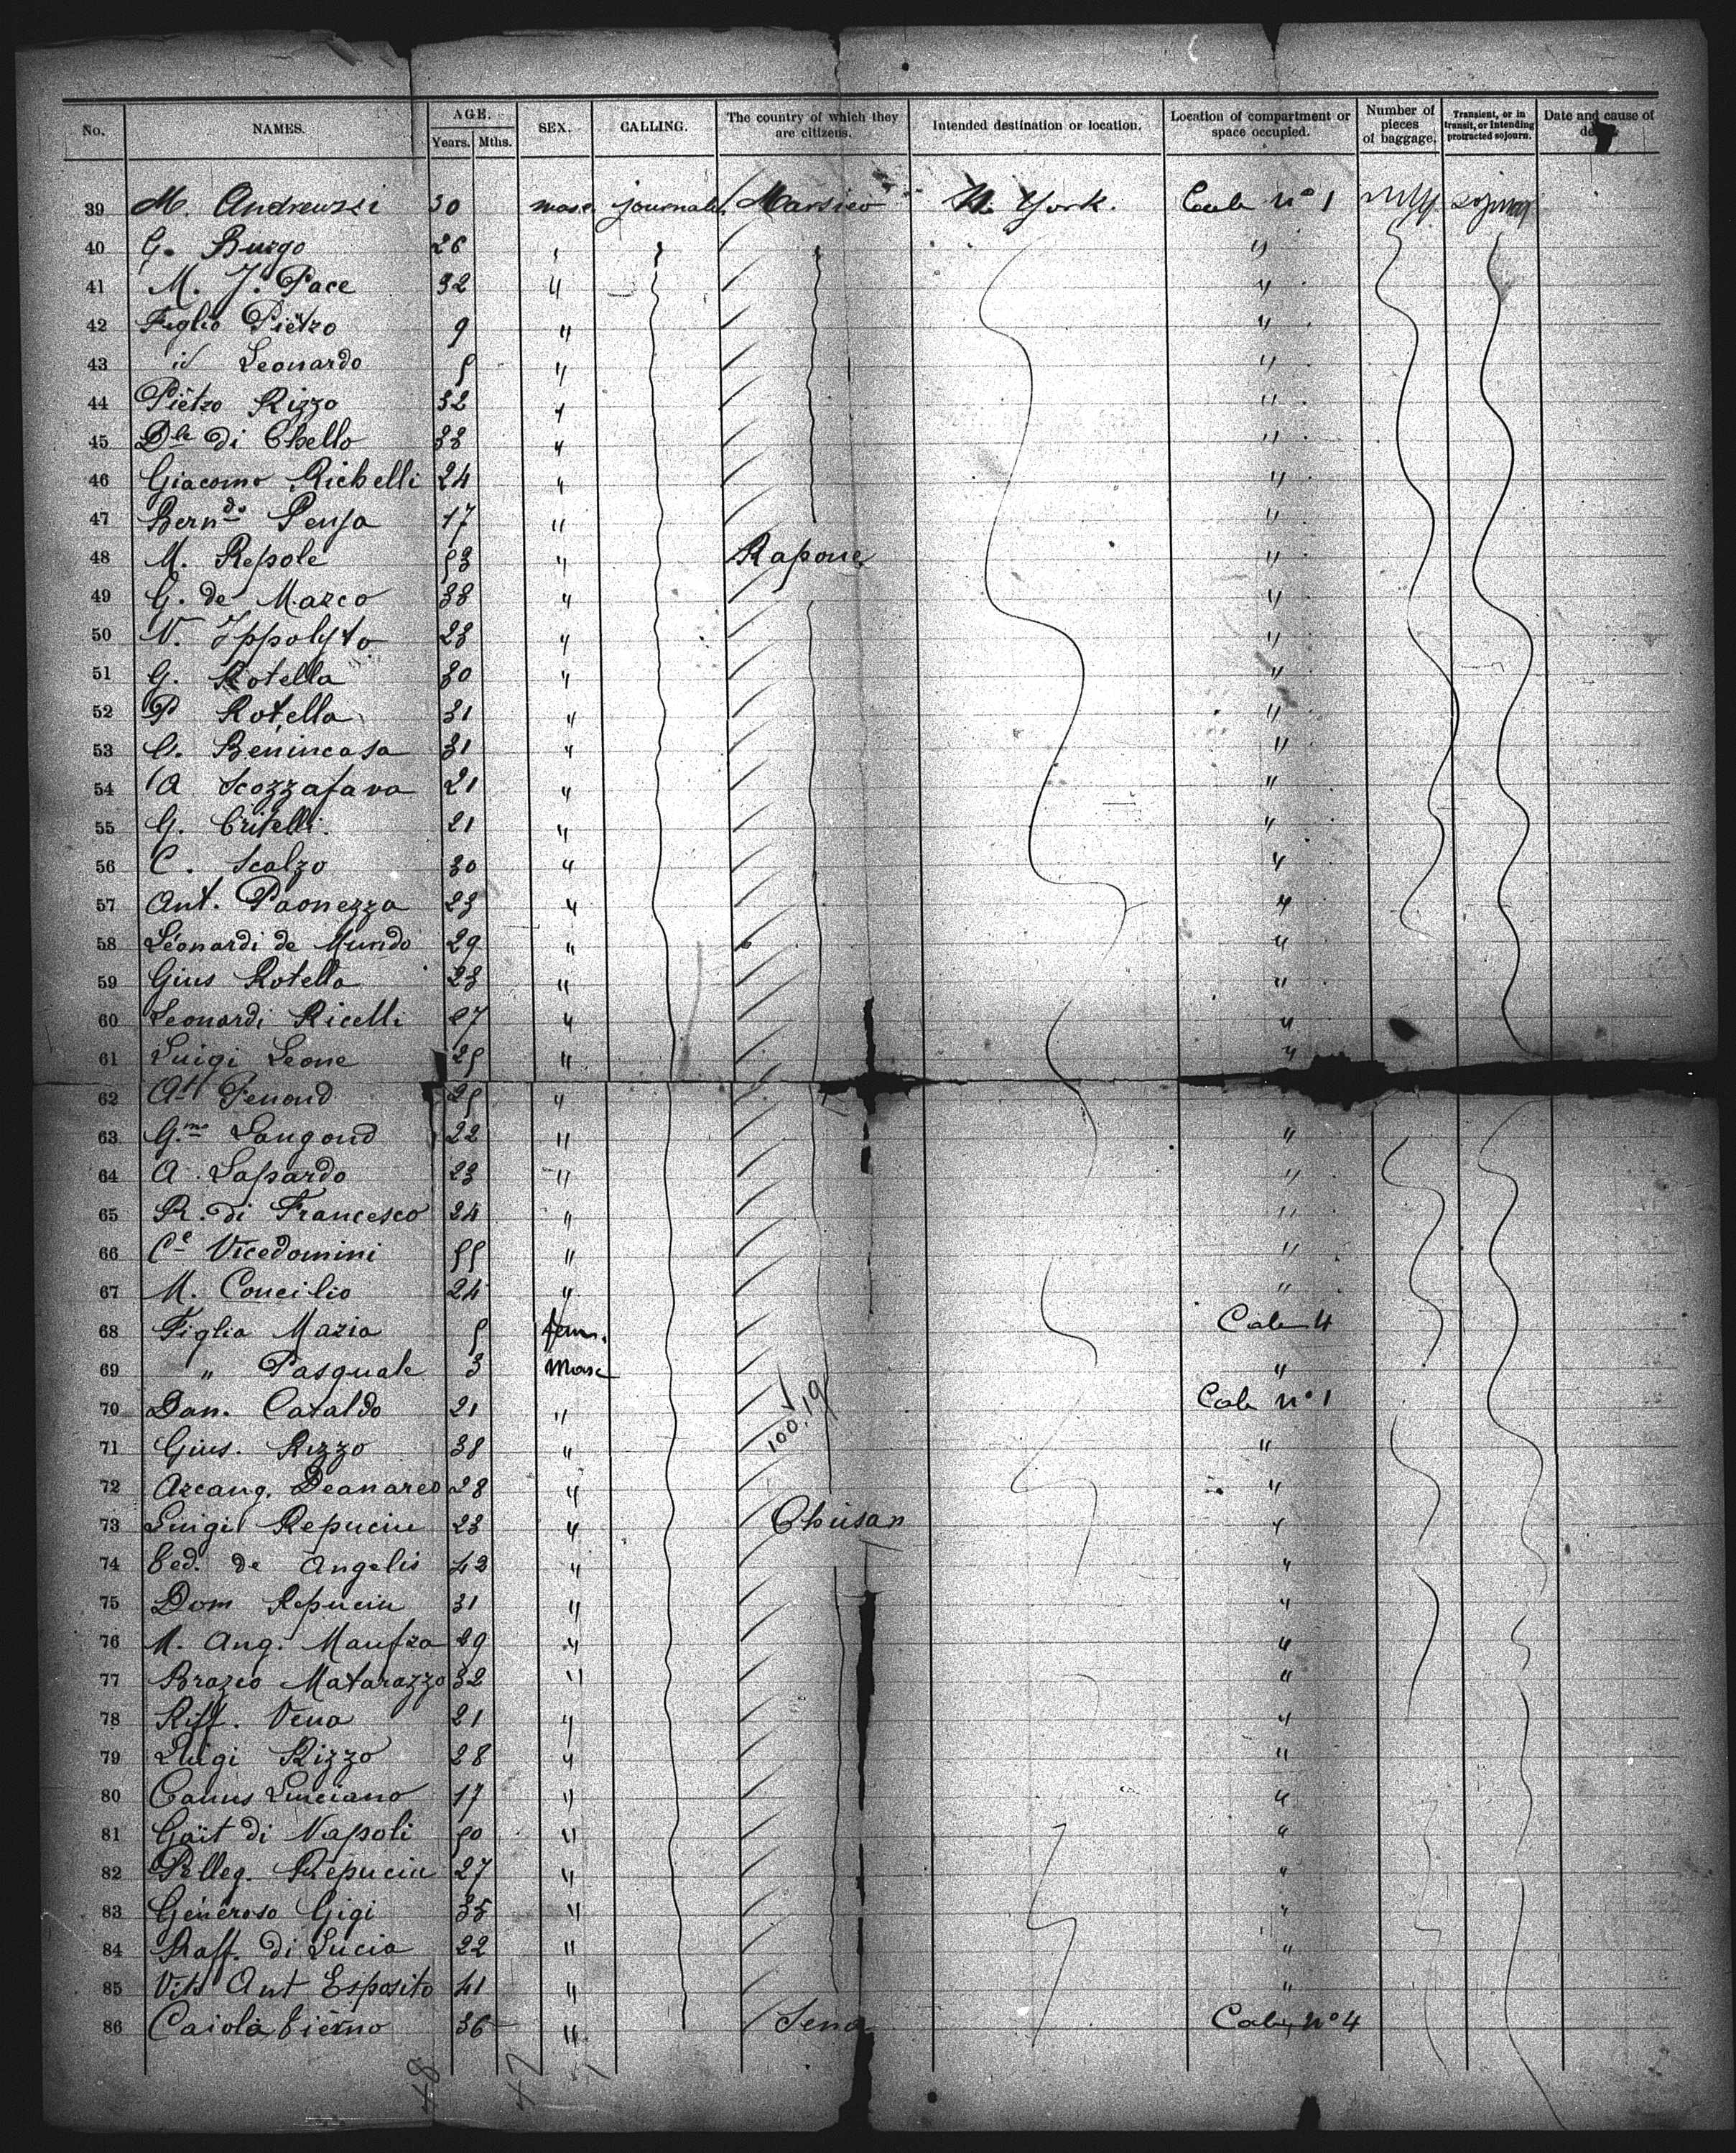 No. NAMES. AGE. Years. Mths. SEX. CALLING. The country of which they are citizens. Intended destination or location. Location of compartment or space occupied. Number of pieces of baggage. Transient, or in transit, or intending protracted sojourn. Date and cause of
39 M. Andreuzzi 30 masc. journal. Marsico N. York. Cale N° 1
40 G. Burgo 26 "
41 M. J. Pace 32 " "
42 Figlio Pietro 9 " "
43 id Leonardo 5 " "
44 Pietro Rizzo 32 " "
45 Dle di Chello 33 " "
46 Giacomo Richelli 24 " "
47 Berndo Pensa 17 " "
48 M. Repole 53 " Rapone "
49 G. de Marco 38 " "
50 N. Ippolyto 23 " "
51 G. Rotella 30 " "
52 P. Rotella 31 " "
53 G. Benincasa 31 " "
54 A Scozzafava 21 " "
55 G. Critelli. 21 " "
56 C. Scalzo 30 " "
57 Ant. Paonezza 23 " "
58 Léonardi de Mundo 29 " "
59 Gius Rotella 23 " "
60 Leonardi Ricelli 27 " "
61 Luigi Leone 25 " "
62 At Fenond 25 "
63 Gme Langond 22 " "
64 A. Lapardo 23 " "
65 R. di Francesco 24 " "
66 Ce Vicedomini 55 " "
67 M. Concilio 24 " "
68 Figlia Maria 5 fem. Cale 4
69 " Pasquale 3 Masc "
70 Dan. Cataldo 21 " 100,19 Cale N° 1
71 Gius. Rizzo 38 " "
72 Arcang. Deanareo 28 " "
73 Luigi Repuciu 23 " Chiusan "
74 Ced. de Angelis 42 " "
75 Dom Repuciu 31 " "
76 M. Ang. Maufra 29 " "
77 Brazio Matarazzo 32 " "
78 Riff. Vena 21 " "
79 Luigi Rizzo 28 " "
80 Canus Luciano 17 " "
81 Gait di Napoli 50 " "
82 Pelleg. Repuciu 27 " "
83 Généroso Gigi 35 " "
84 Raff. di Lucia 22 " "
85 Vito Ant Esposito 41 " "
86 Caiola Cierno 36 " Sena Cale N° 4
48 47 1